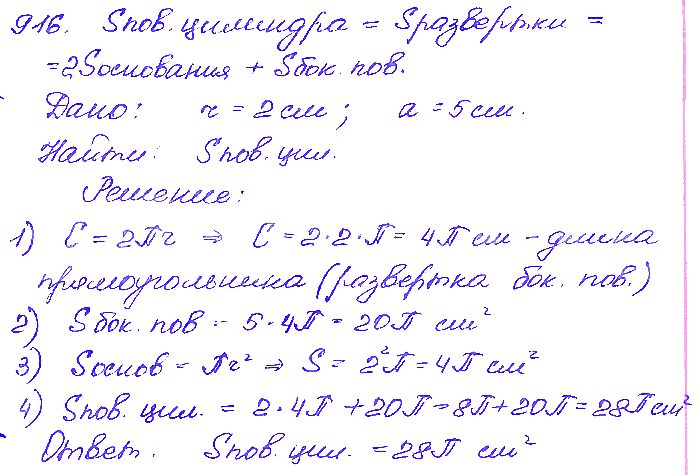 916. Sпов. цилиндра = Sразвертки =
= 2Sоснования + Sбок. пов.
Дано: r = 2 см; a = 5 см.
Найти: Sпов. цил.
Решение:
1) C = 2πr ⇒ C = 2·2·π = 4π см - длина
прямоугольника (развертка бок. пов.)
2) Sбок. пов = 5·4π = 20π см²
3) Sоснов = πr² ⇒ S = 2²π = 4π см²
4) Sпов. цил. = 2·4π + 20π = 8π + 20π = 28π см²
Ответ. Sпов. цил. = 28π см²